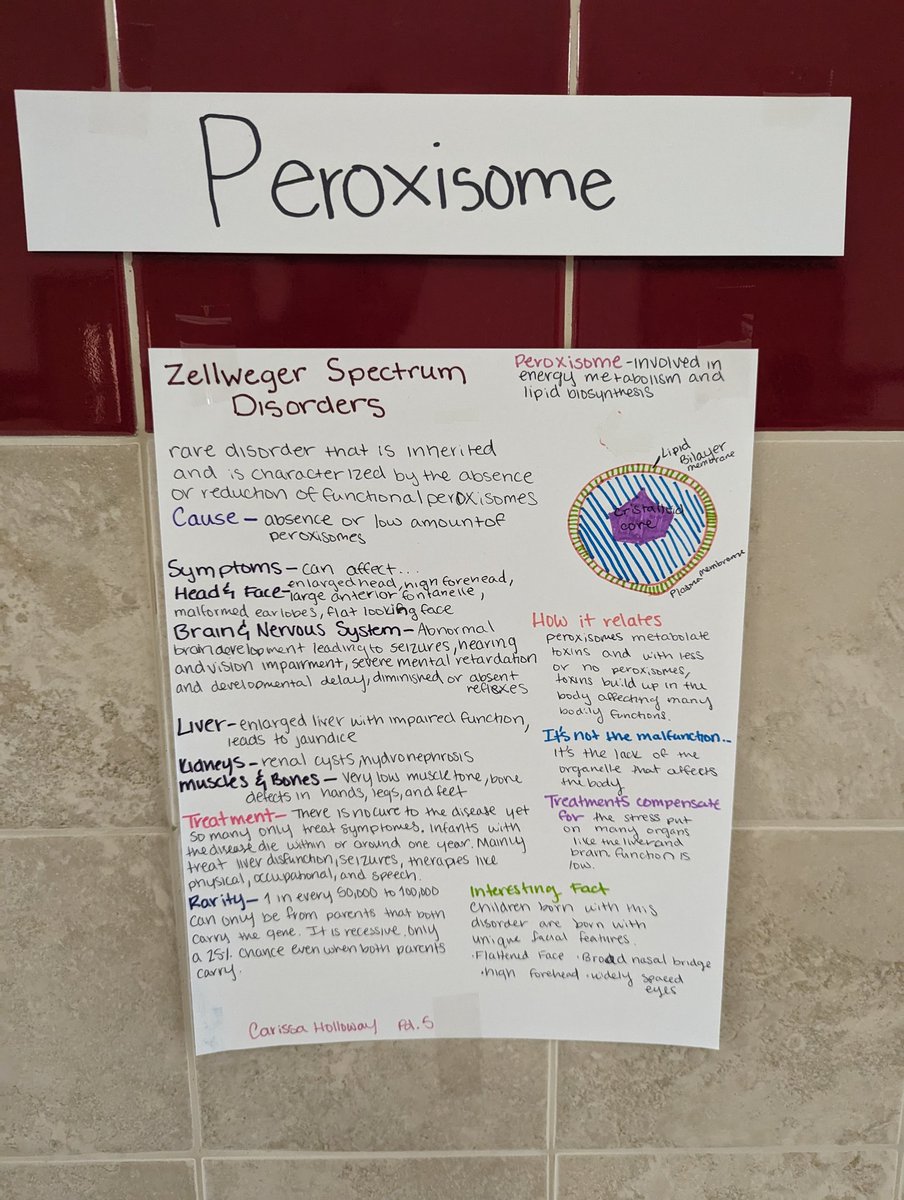 Peroxisome
Zellweger Spectrum
Disorders
rare disorder that is inherited
and is characterized by the absence
or reduction of functional peroxisomes
Cause – absence or low amount of
peroxisomes
Symptoms – can affect...
Head & Face – enlarged head, high forehead,
large anterior fontanelle,
malformed earlobes, flat looking face
Brain & Nervous System – Abnormal
brain development leading to seizures, hearing
and vision impairment, severe mental retardation
and developmental delay, diminished or absent
reflexes
Liver – enlarged liver with impaired function,
leads to jaundice
Kidneys – renal cysts, hydronephrosis
Muscles & Bones – very low muscle tone, bone
defects in hands, legs, and feet
Treatment – There is no cure to the disease yet
so many only treat symptomes. Infants with
the disease die within or around one year. Mainly
treat liver disfunction, seizures, therapies like
physical, occupational, and speech.
Rarity – 1 in every 50,000 to 100,000
can only be from parents that both
carry the gene. It is recessive. Only
a 25% chance even when both parents
carry.
Carissa Holloway Pd. 5
Peroxisome – involved in
energy metabolism and
lipid biosynthesis
Lipid
Bilayer
membrane
cristalloid
core
Plasma membrane
How it relates
peroxisomes metabolate
toxins and with less
or no peroxisomes,
toxins build up in the
body affecting many
bodily functions.
It's not the malfunction...
it's the lack of the
organelle that affects
the body
Treatments compensate
for the stress put
on many organs
like the liver and
brain function is
low.
Interesting Fact
Children born with this
disorder are born with
unique facial features.
· Flattened Face · Broad nasal bridge
· high forehead · widely spaced
eyes